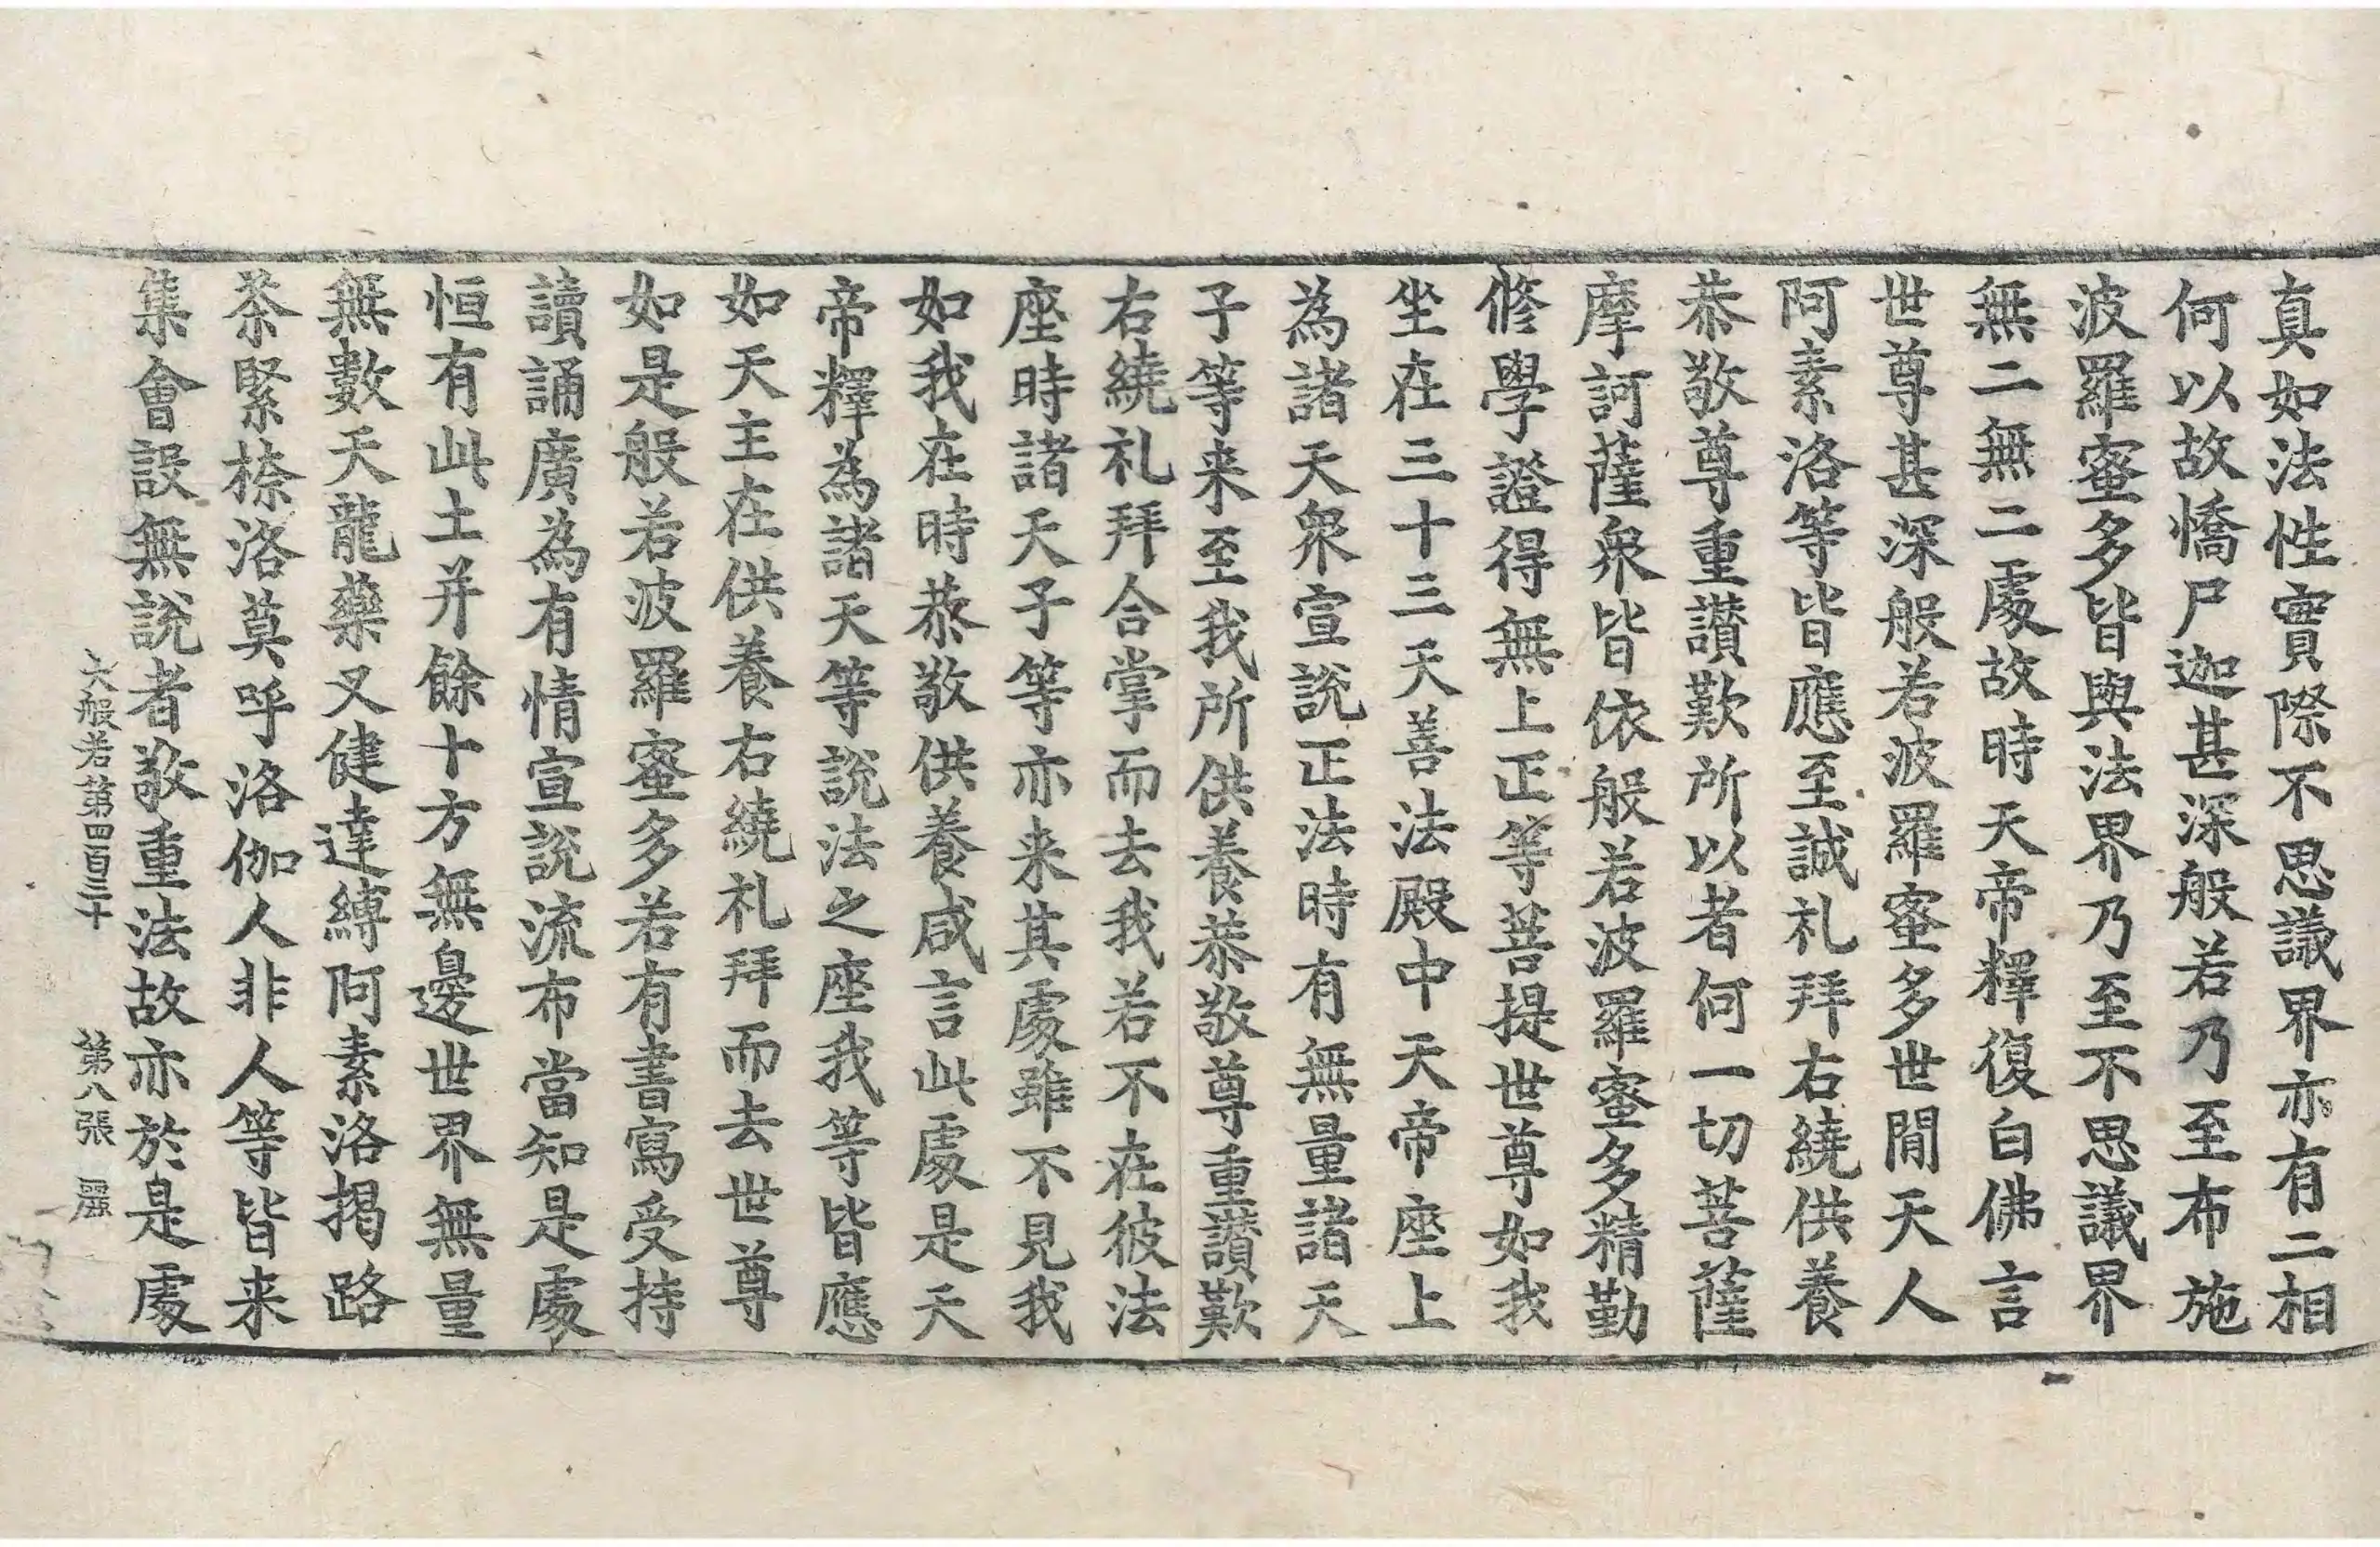 真如法性實際不思議界亦有二相
何以故憍尸迦甚深般若乃至布施
波羅蜜多皆與法界乃至不思議界
無二無二處故時天帝釋復白佛言
世尊甚深般若波羅蜜多世閒天人
阿素洛等皆應至誠礼拜右繞供養
恭敬尊重讚歎所以者何一切菩薩
摩訶薩衆皆依般若波羅蜜多精勤
修學證得無上正等菩提世尊如我
坐在三十三天善法殿中天帝座上
為諸天衆宣說正法時有無量諸天
子等来至我所供養恭敬尊重讚歎
右繞礼拜合掌而去我若不在彼法
座時諸天子等亦来其處雖不見我
如我在時恭敬供養咸言此處是天
帝釋為諸天等說法之座我等皆應
如天主在供養右繞礼拜而去世尊
如是般若波羅蜜多若有書寫受持
讀誦廣為有情宣說流布當知是處
恒有此土并餘十方無邊世界無量
無數天龍藥叉健達縛阿素洛揭路
荼緊捺洛莫呼洛伽人非人等皆来
集會設無說者敬重法故亦於是處
大般若第四百三十 第八張 麗